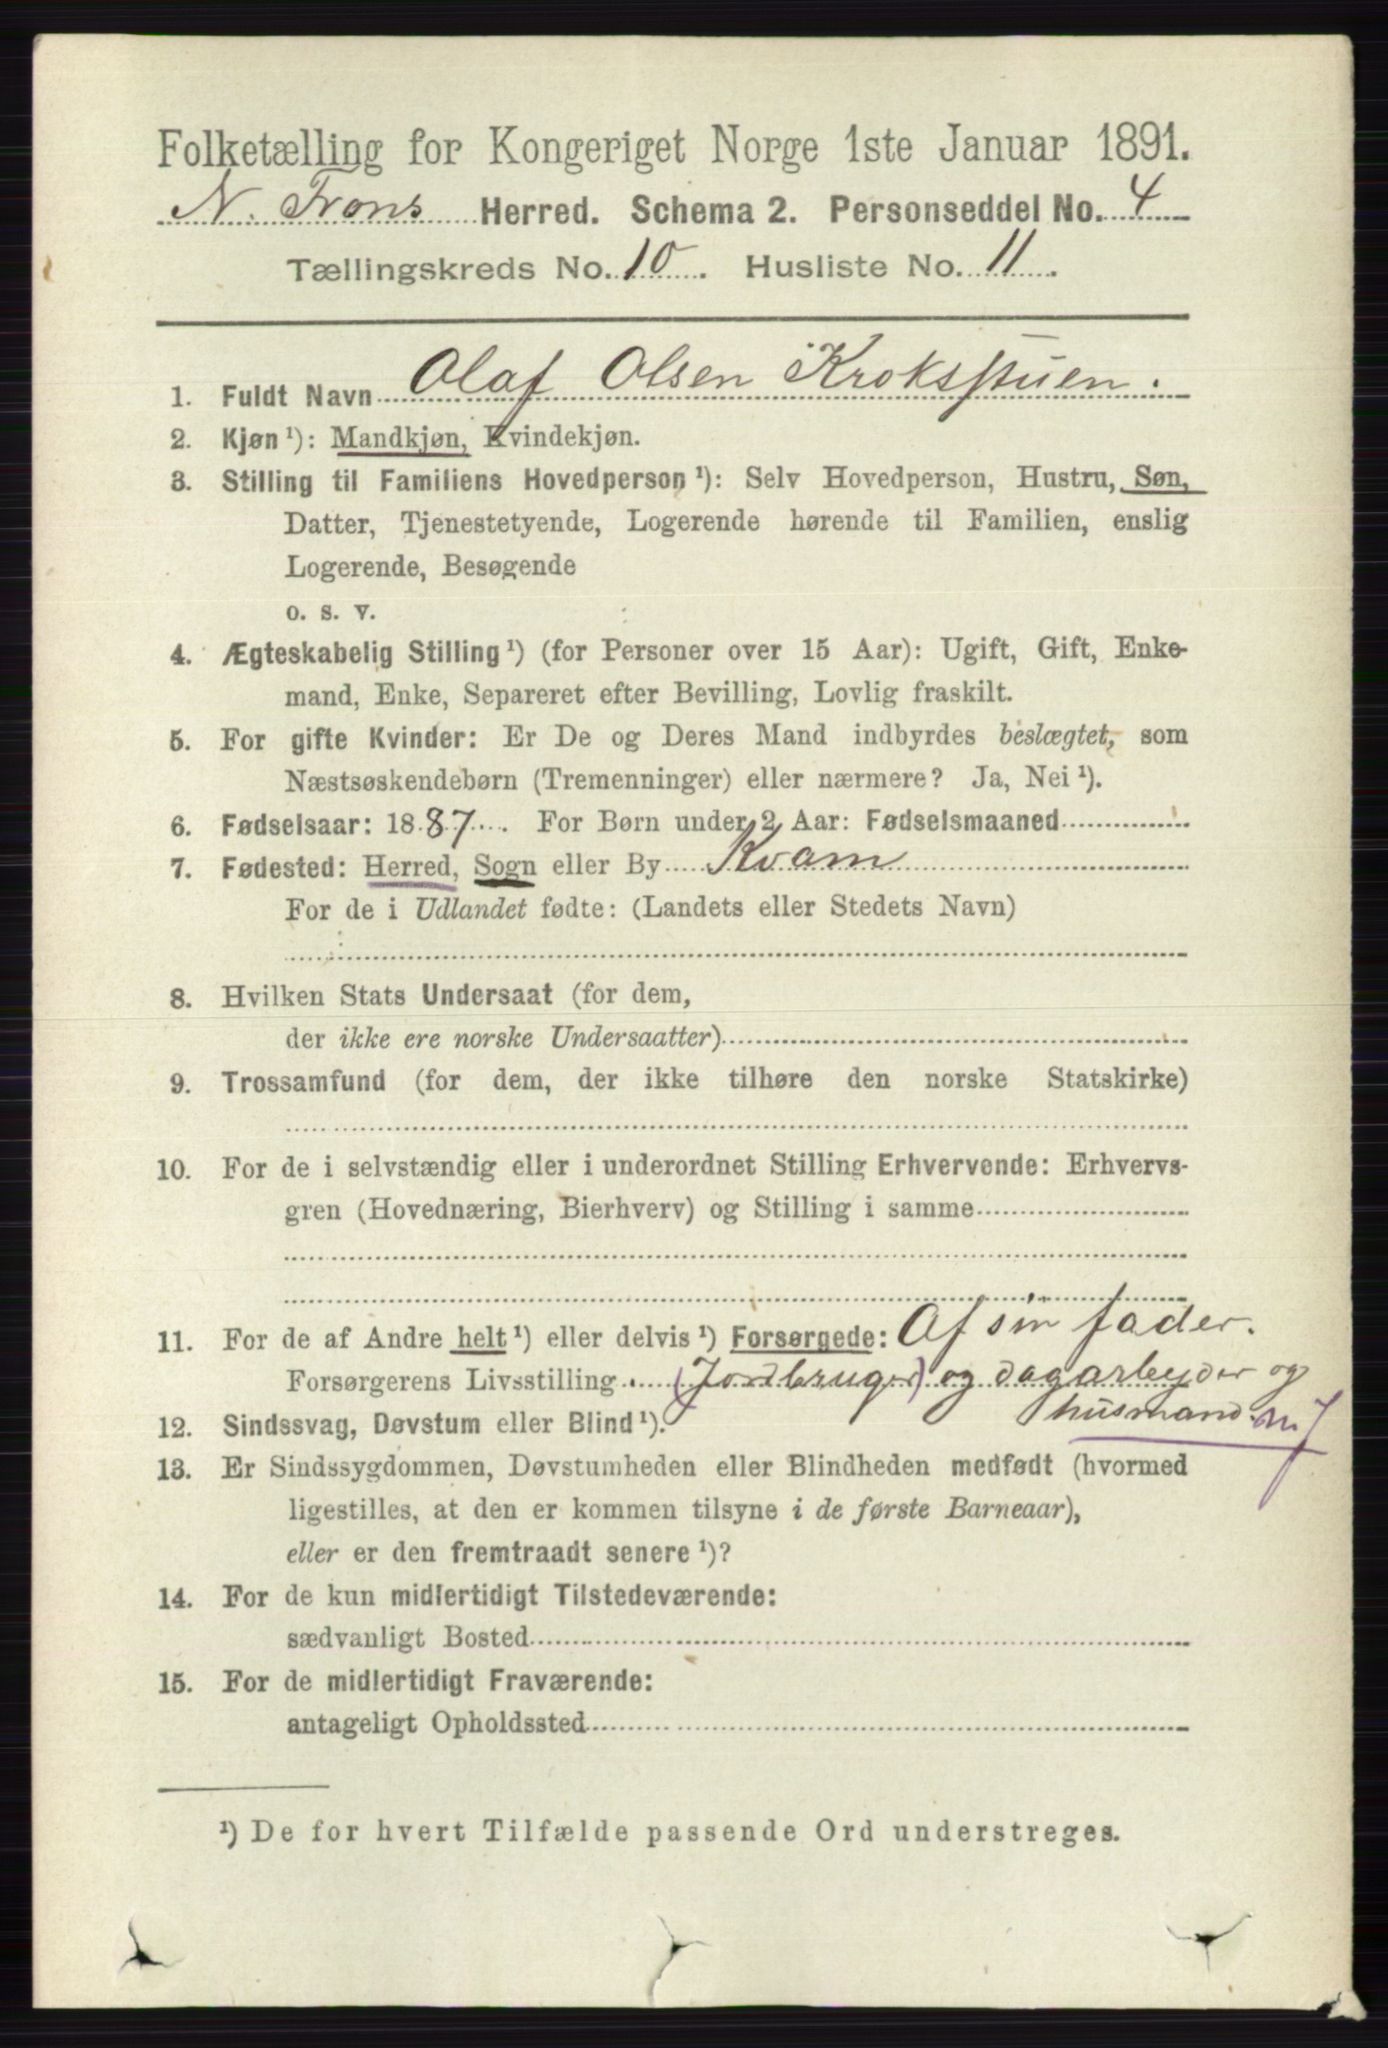 Folketælling for Kongeriget Norge 1ste Januar 1891.
N. Frons Herred. Schema 2. Personseddel No. 4
Tællingskreds No. 10. Husliste No. 11.
1. Fuldt Navn Olaf Olsen Kroksstuen.
2. Kjøn¹): Mandkjøn, Kvindekjøn.
3. Stilling til Familiens Hovedperson¹): Selv Hovedperson, Hustru, Søn,
Datter, Tjenestetyende, Logerende hørende til Familien, enslig
Logerende, Besøgende
o. s. v.
4. Ægteskabelig Stilling¹) (for Personer over 15 Aar): Ugift, Gift, Enke-
mand, Enke, Separeret efter Bevilling, Lovlig fraskilt.
5. For gifte Kvinder: Er De og Deres Mand indbyrdes beslægtet, som
Næstsøskendebørn (Tremenninger) eller nærmere? Ja, Nei¹).
6. Fødselsaar: 1887. For Børn under 2 Aar: Fødselsmaaned
7. Fødested: Herred, Sogn eller By Kvam
For de i Udlandet fødte: (Landets eller Stedets Navn)
8. Hvilken Stats Undersaat (for dem,
der ikke ere norske Undersaatter)
9. Trossamfund (for dem, der ikke tilhøre den norske Statskirke)
10. For de i selvstændig eller i underordnet Stilling Erhvervende: Erhvervs-
gren (Hovednæring, Bierhverv) og Stilling i samme
11. For de af Andre helt¹) eller delvis¹) Forsørgede: Af sin fader.
Forsørgerens Livsstilling (Jordbruger) og dagarbeyder og
husmand. m J
12. Sindssvag, Døvstum eller Blind¹).
13. Er Sindssygdommen, Døvstumheden eller Blindheden medfødt (hvormed
ligestilles, at den er kommen tilsyne i de første Barneaar),
eller er den fremtraadt senere¹)?
14. For de kun midlertidigt Tilstedeværende:
sædvanligt Bosted
15. For de midlertidigt Fraværende:
antageligt Opholdssted
¹) De for hvert Tilfælde passende Ord understreges.